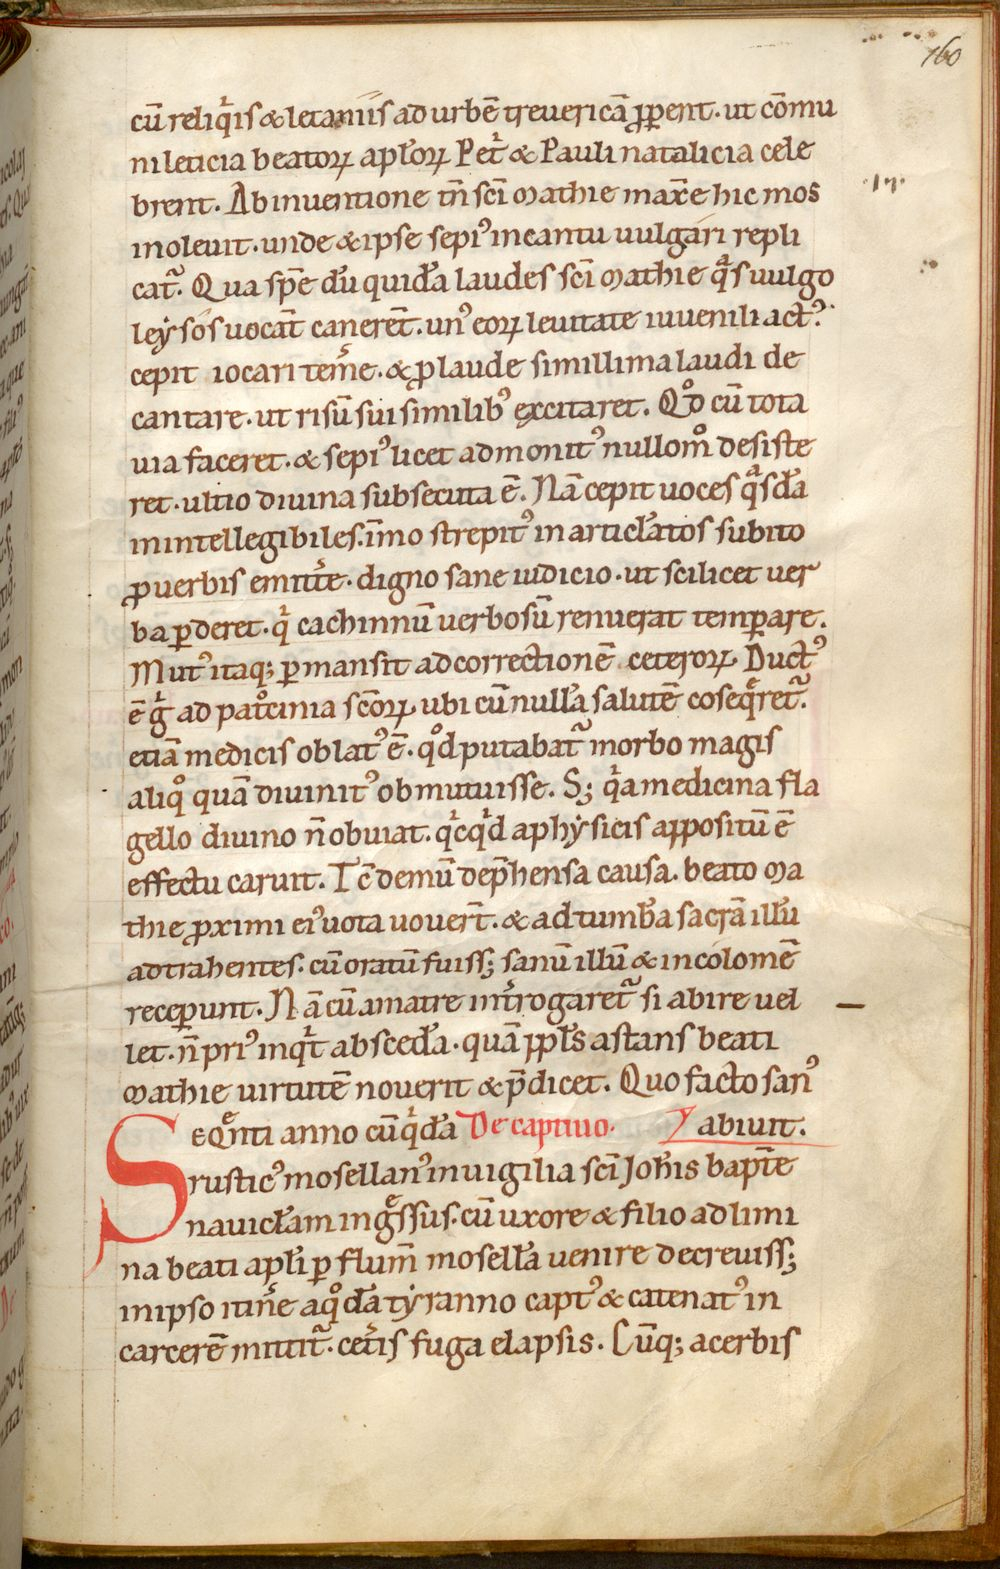 160
cū reliqͥis & letaniis ad urbē trevericā ꝓꝑent. ut cōmu
ni leticia beatoꝝ apl̄oꝝ Petͥ & Pauli natalicia cele
brent. Ab inventione tn̄ sc̄i Mathie max̄e hic mos
inolevit. unde & ipse sepiꝰ in cantu vulgari repli
catᷓ. Qua sp̄e dū quidā laudes sc̄i Mathie qͣs vulgo
leẏsos vocant̄ canerēt. unꝰ eoꝝ levitate iuvenili actꝰ.
cepit iocari tem̄e. & ꝓ laude simillima laudi de
cantare. ut risū sui similibꝰ excitaret. Qͦd cū tota
via faceret. & sepiꝰ licet admonitꝰ nullom̊ desiste
ret. ultio divina subsecuta ē. Nā cepit voces qͣsdā
inintellegibiles. īmo strepitꝰ inarticl̄atos subito
ꝓ verbis emitt̄e. digno sane iudicio. ut scilicet ver
ba ꝑderet. qͥ cachinnū verbosū renuerat temꝑare.
Mutꝰ itaq; ꝑmansit ad correctionē ceteroꝝ. Ductꝰ
ē gͥ ad patͦcinia sc̄oꝝ. ubi cū nullā salutē coseqͤretᷓ.
etiā medicis oblatꝰ ē. qͦd putabatᷓ morbo magis
aliqͦ quā divinitꝰ obmutuisse. S; qͥa medicina fla
gello divino n̄ obviat. qͥcqͥd a phẏsicis appositū ē
effectu caruit. Tc̄ demū dep̄hensa causa. beato Ma
thie ꝓximi eiꝰ vota vover̄t. & ad tumbā sacrā illū
adtrahentes. cū oratū fuiss; sanū illū & incolomē
receꝑunt. Nā cum a matre int̄rogaretᷓ si abire vel
let. n̄ priꝰ inqͥt abscedā. quā ppl̄s astans beati
Mathie virtutē noverit & p̄dicet. Quo facto sanꝰ
abivit.
Seqͤnti anno cū qͥdā De captivo.
rusticꝰ mosellanꝰ in vigilia sc̄i Joh̄is bapt̄e
navicl̄am ingͤssus. cū uxore & filio ad limi
na beati apl̄i ꝑ flum̄ mosellā venire decreviss;
in ipso itin̄e a qͦdā tẏranno captꝰ & catenatꝰ in
carcerē mittitᷓ. cetͥis fuga elapsis. Cūq; acerbis